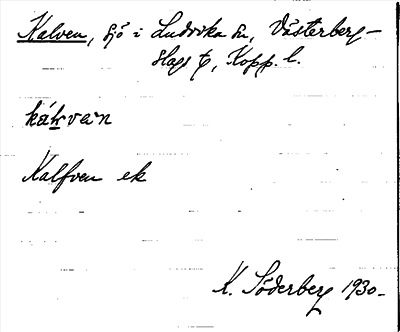 Kalven, sjö i Ludvika sn, Västerberg-
slags t, Kopp. l.
Kalfven ek
K. Söderberg 1930